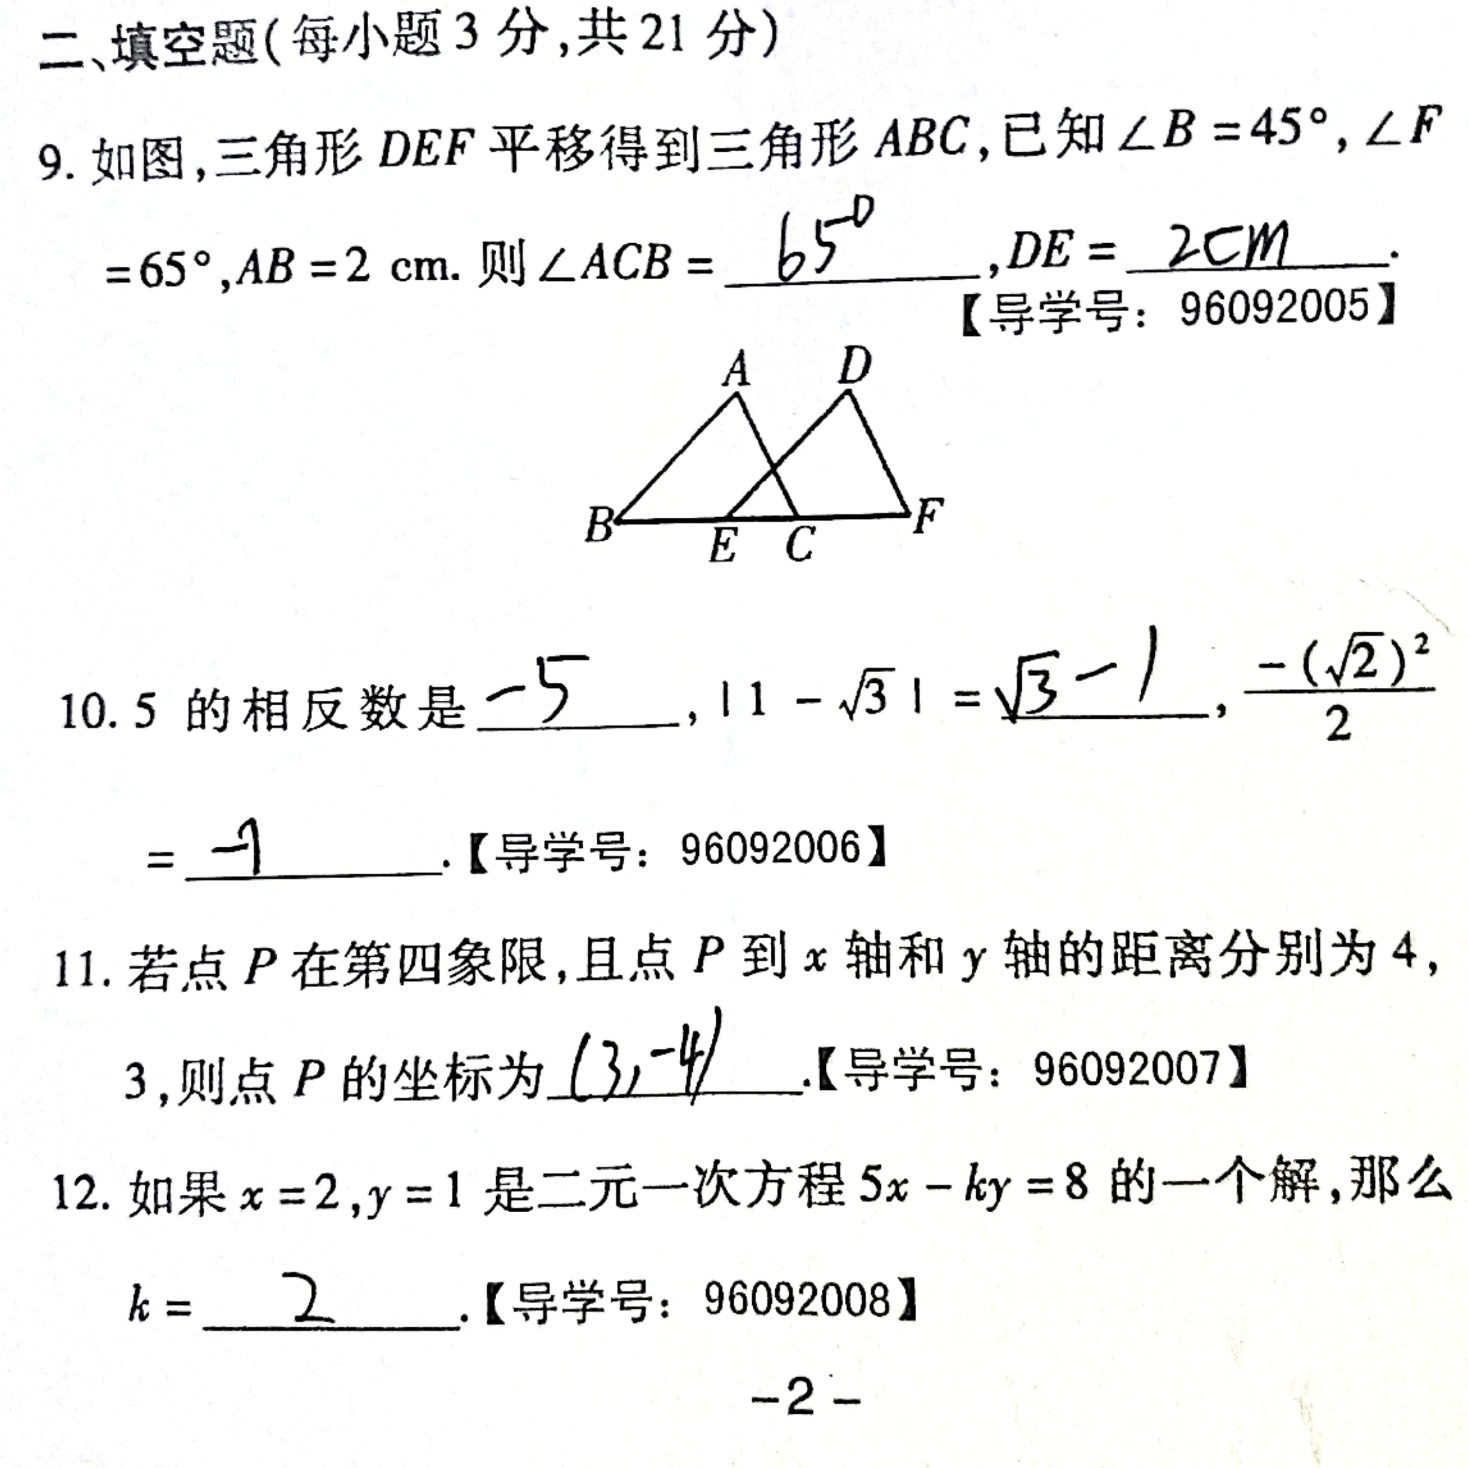 二、填空题(每小题3分,共21分)
9. 如图,三角形 DEF 平移得到三角形 ABC,已知∠B=45°,∠F
=65°,AB=2 cm. 则∠ACB= 65° ,DE= 2cm .
【导学号：96092005】
A D
B E C F
10. 5 的相反数是 -5 ,|1-√3|= √3-1 , -(√2)²/2
= -1 .【导学号：96092006】
11. 若点 P 在第四象限,且点 P 到 x 轴和 y 轴的距离分别为4,
3,则点 P 的坐标为 (3,-4) .【导学号：96092007】
12. 如果 x=2,y=1 是二元一次方程 5x-ky=8 的一个解,那么
k= 2 .【导学号：96092008】
-2-